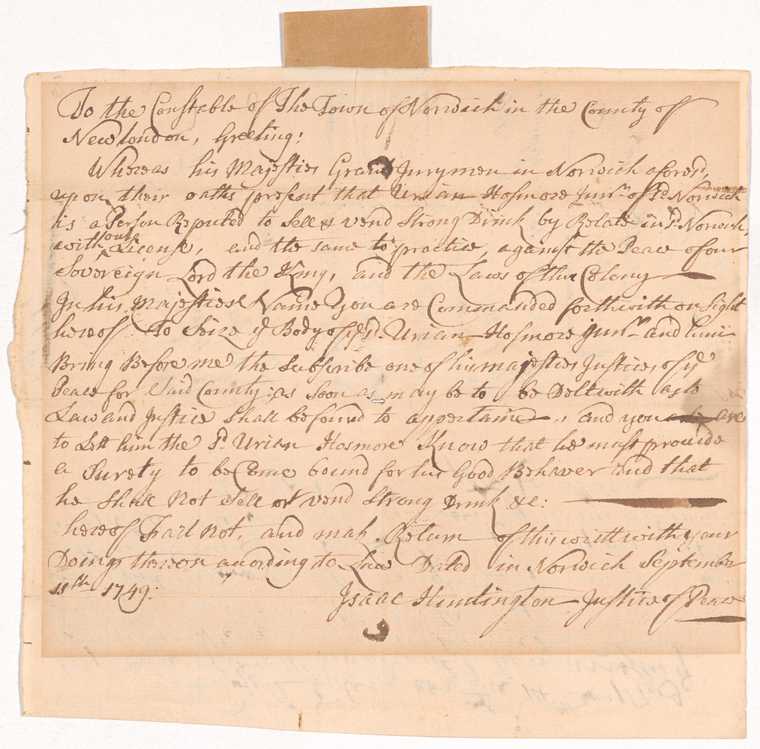 To the Constable of The Town of Norwich in the County of
Newlondon, Greeting:
Whereas his Majesties Grand Jurymen in Norwich aforesd,
upon their oaths present that Urian Hosmore Junr. of sd Norwich
is a Person Reputed to Sell & vend Strong Drink by Retale in sd Norwich,
without License, and the same to practice, against the Peace of our
Sovereign Lord the King, and the Laws of this Colony
In his Majesties Name You are Commanded forthwith on Sight
hereof to Seize ye Body of sd Urian Hosmore Junr. and him
Bring Before me the Subscribe one of his majesties Justices of ye
Peace for Said County as soon as may be to be Delt with as to
Law and Justice Shall be found to appertaine, and you are
to Lett him the sd Urian Hosmore Know that he must provide
a Surety to be Come bound for his Good Behaver and that
he Shall Not Sell or vend Strong Drink &c:
hereof Fail Not, and mak Return of this writt with your
Doings thereon acording to Law Dated in Norwich September
11th 1749:
Isaac Huntington Justice of Peace